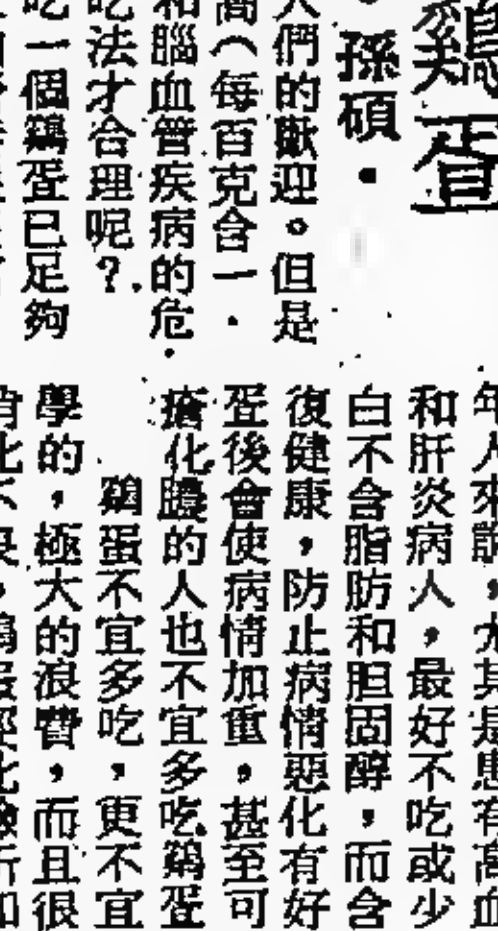 鷄蛋
·孫碩·
人們的歡迎。但是
高（每百克含一·
和腦血管疾病的危
吃法才合理呢？
吃一個鷄蛋已足夠
年人來說，尤其是患有高血
和肝炎病人，最好不吃或少
白不含脂肪和胆固醇，而含
復健康，防止病情惡化有好
蛋後會使病情加重，甚至可
的人也不宜多吃鷄蛋
鷄蛋不宜多吃，更不宜
學的，極大的浪費，而且很